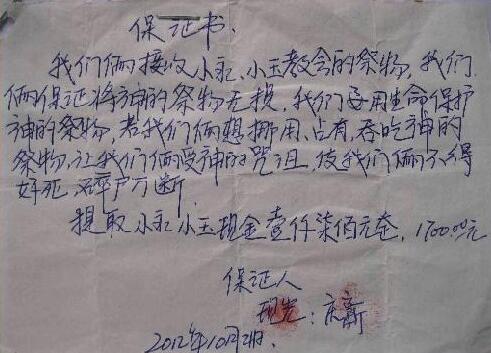 保证书、
我们俩接收小永、小玉教会的祭物,我们
俩保证将神的祭物无损,我们要用生命保护
神的祭物,若我们俩想挪用、占有、吞吃神的
祭物,让我们俩受神的咒诅,使我们俩不得
好死,碎尸万断
提取小永小玉现金壹仟柒佰元整,1700.00元
保证人
现光:庆新
2012年10月2日.